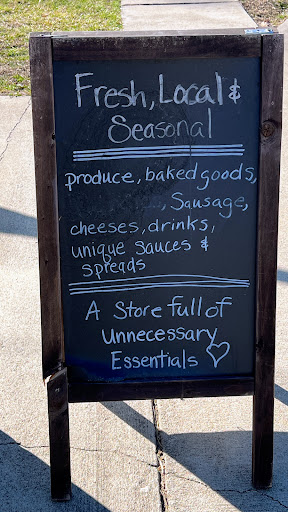 Fresh, Local &
Seasonal
produce, baked goods,
Sausage,
cheeses, drinks,
unique sauces &
spreads
A Store full of
Unnecessary
Essentials